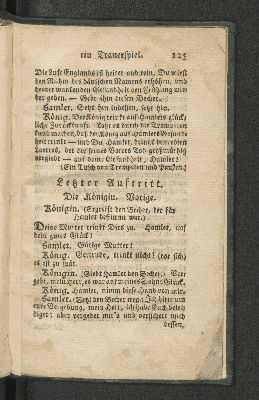 ein Trauerspiel. 125
Die Luft Englands ist heiter und rein. Du wirst
den Ruhm des dänischen Namens erhöhen, und
deiner wankenden Gesundheit den Frühling wie-
der geben. — Gebt ihm diesen Becher.
Hamlet. Setzt hen indessen, setzt hin.
König. Der König trinkt auf Hamlets glück-
liche Zurückkunft. Laßt es durch die Trompeten
kund machen, daß der König auf Hamlets Gesund-
heit trinkt, auf die Hamlet, trinkt demselben
der des Vaters Tod großmüthig
vergiebt — auf deine Gesundheit, Hamlet!
(Ein Tusch von Trompeten und Pauken.)
Letzter Auftritt.
Die Königin. Vorige.
Königin. (Ergreift den Becher, der für
Hamlet bestimmt war.)
Deine Mutter trinkt Dirs zu. Hamlet, auf
dein gutes Glück!
Hamlet. Gütige Mutter!
König. Gertrude, trinkt nicht! (vor sich)
es ist zu spät.
Königin. (Giebt Hamlet den Becher.) Ver-
gebt, mein Herr, es war auf meines Sohns Glück.
König. Hamlet, nimm diese Hand von mir.
Hamlet. (Setzt den Becher weg) Ich bitte um
eure Vergebung, mein Herr, ich habe Euch belei-
digt; aber vergebet mir's und versichert mich
dessen,